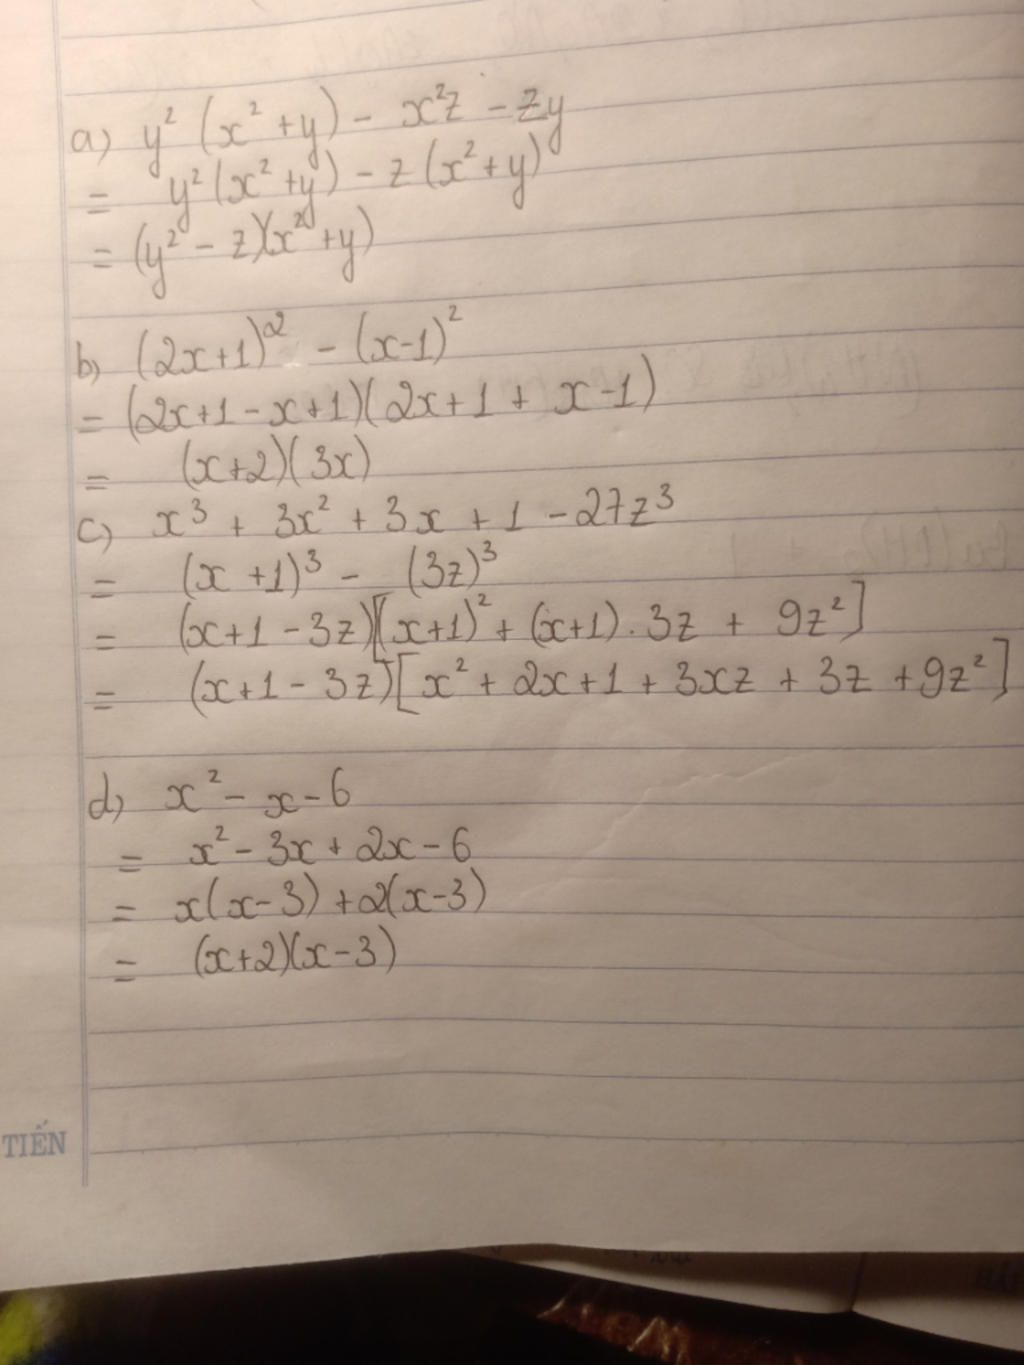 a) y² (x² + y) - x²z - zy
= y² (x² + y) - z (x² + y)
= (y² - z)(x² + y)
b) (2x+1)² - (x-1)²
= (2x+1-x+1)(2x+1 + x-1)
= (x+2)(3x)
c) x³ + 3x² + 3x + 1 - 27z³
= (x+1)³ - (3z)³
= (x+1-3z)[(x+1)² + (x+1).3z + 9z²]
= (x+1-3z)[x² + 2x+1 + 3xz + 3z + 9z²]
d) x² - x - 6
= x² - 3x + 2x - 6
= x(x-3) + 2(x-3)
= (x+2)(x-3)
TIẾN